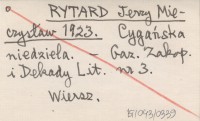 RYTARD Jerzy Mie-
czysław 1923. Cygańska
niedziela. – Gaz. Zakop.
i Dekady Lit. nr 3.
Wiersz.